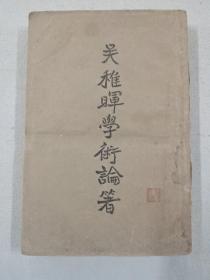 吴稚暉學術論著